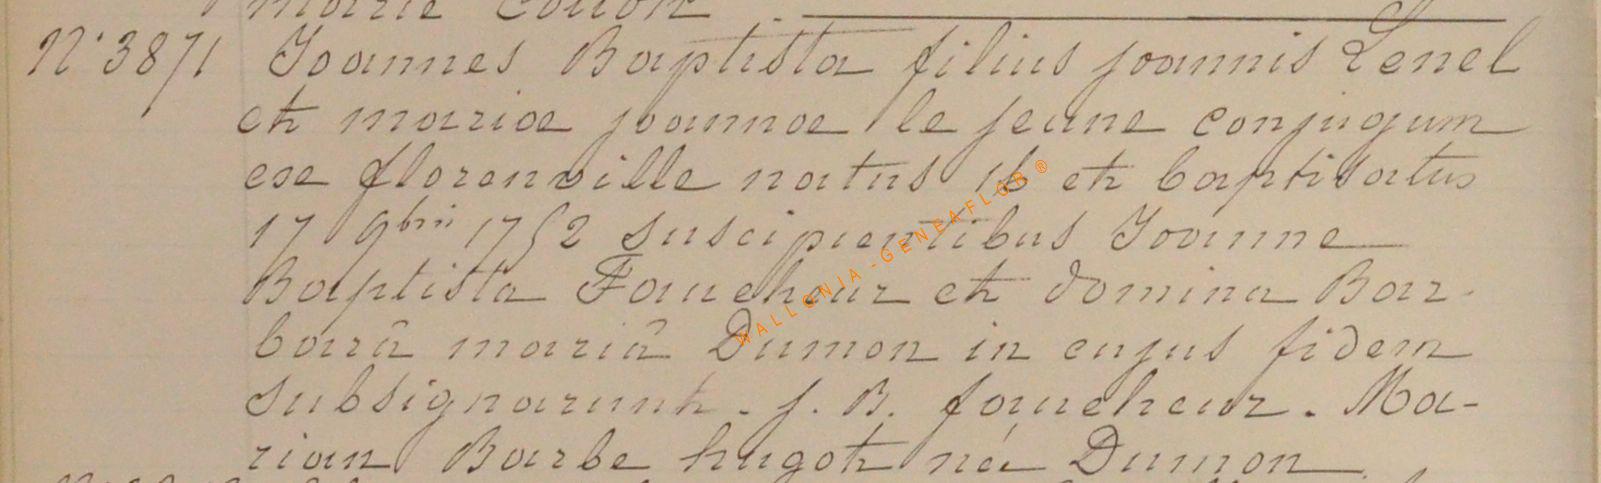 marie Collon
N° 3871 Joannes Baptista filius joannis Lenel
et mariae joannae le jeune conjugum
ex florenville natus 16 et baptisatus
17 9bris 1752 suscipientibus Joanne
Baptista Faucheur et domina Bar-
barâ mariâ Dumon in cujus fidem
subsignarunt. j. B. faucheur. Ma-
rian Barbe hugot née Dumon
WALLONIA-GENEAFLOR ®